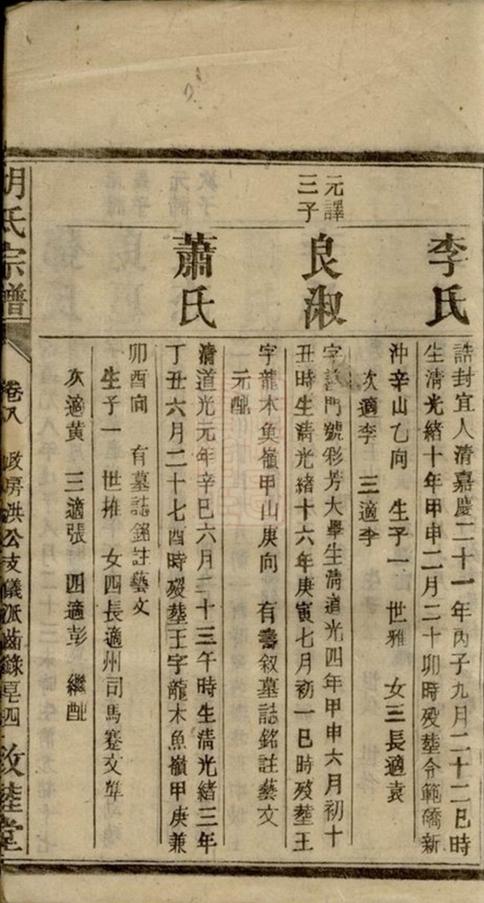 李氏
誥封宜人清嘉慶二十一年丙子九月二十二巳時
生清光緒十年甲申二月二十卯時殁塟令範僑新
沖辛山乙向 生子一 世雅 女三長適袁
次適李 三適李
元譯
三子
良淑
字 門號彩芳大學生清道光四年甲申六月初十
丑時生清光緒十六年庚寅七月初一巳時殁塟王
字龍木魚嶺甲山庚向 有壽叙墓誌銘註藝文
元配
蕭氏
清道光元年辛巳六月二十三午時生清光緒三年
丁丑六月二十七酉時殁塟王字龍木魚嶺甲庚兼
卯酉向 有墓誌銘註藝文
生子一 世推 女四長適州司馬蹇文
次適黄 三適張 四適彭 繼配
胡氏宗譜
卷八 政房洪公支儀派齒錄 四
敦睦堂